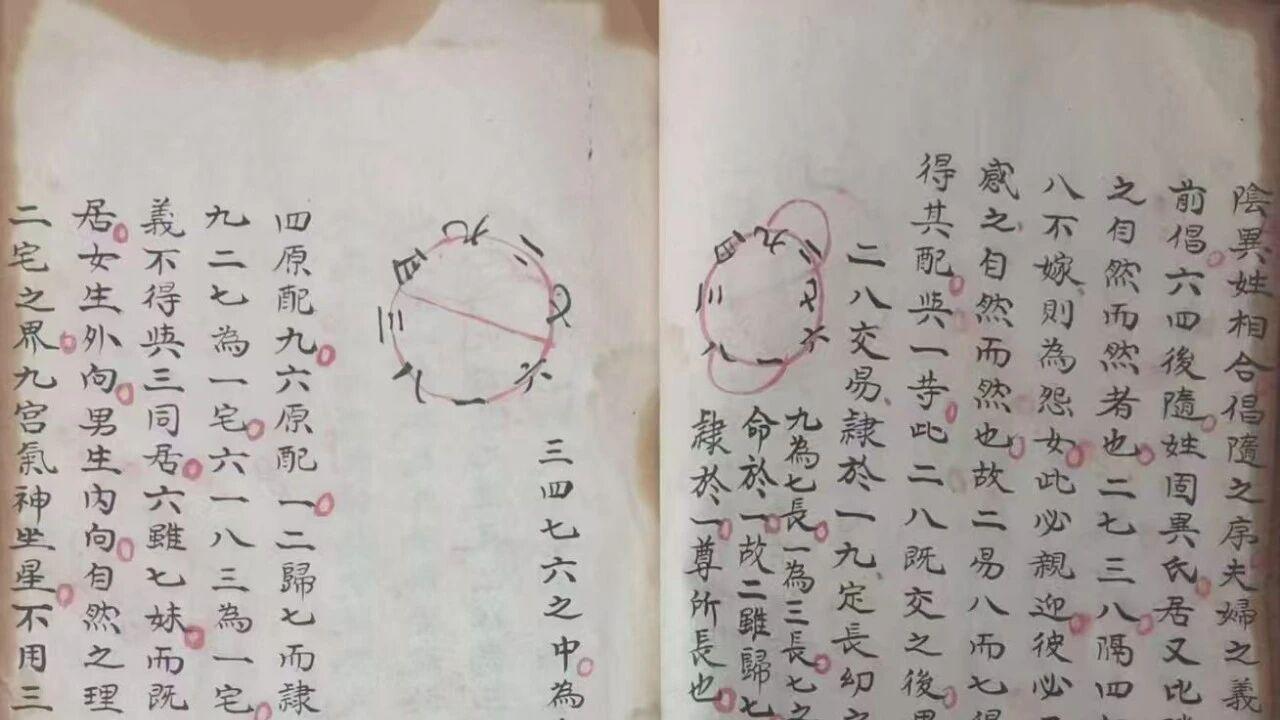 陰異姓相合倡隨之序夫婦之義
前倡六四後隨姓固異氏居又比
之自然而然者也二七三八隔四
八不嫁則為怨女此必親迎彼必
感之自然而然也故二易八而七得
得其配與一等此二八既交之後
二八交易隸於一九定長幼
九為七長一為三長七之
命於一故二雖歸七
隸於一尊所長也
九二七六一八三四
三四七六之中為
九二七六一八三四
四原配九六原配一二歸七而隸
九二七為一宅六一八三為一宅
義不得與三同居六雖七妹而既
居女生外向男生內向自然之理
二宅之界九宮氣神坐星不用三